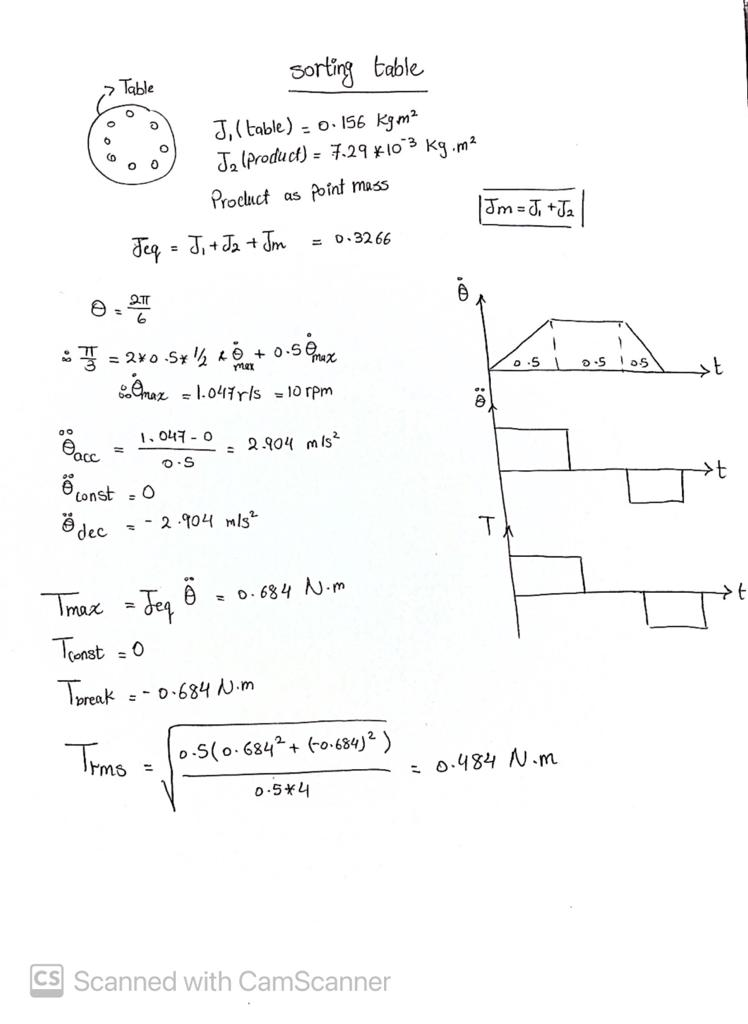 sorting table
Table
J₁(table) = 0.156 Kgm²
J₂(product) = 7.29 *10⁻³ Kg.m²
Product as point mass
Jm = J₁ + J₂
Jeq = J₁ + J₂ + Jm = 0.3266
θ = 2π/6
∴ π/3 = 2*0.5*1/2 * θ̇max + 0.5 θ̇max
∴ θ̇max = 1.047 r/s = 10 rpm
θ̈acc = (1.047 - 0)/0.5 = 2.904 m/s²
θ̈const = 0
θ̈dec = - 2.904 m/s²
θ̇
0.5 0.5 0.5 t
θ̈
t
T
t
Tmax = Jeq θ̈ = 0.684 N.m
Tconst = 0
Tbreak = - 0.684 N.m
Trms = √((0.5(0.684² + (-0.684)²))/(0.5*4)) = 0.484 N.m
CS Scanned with CamScanner